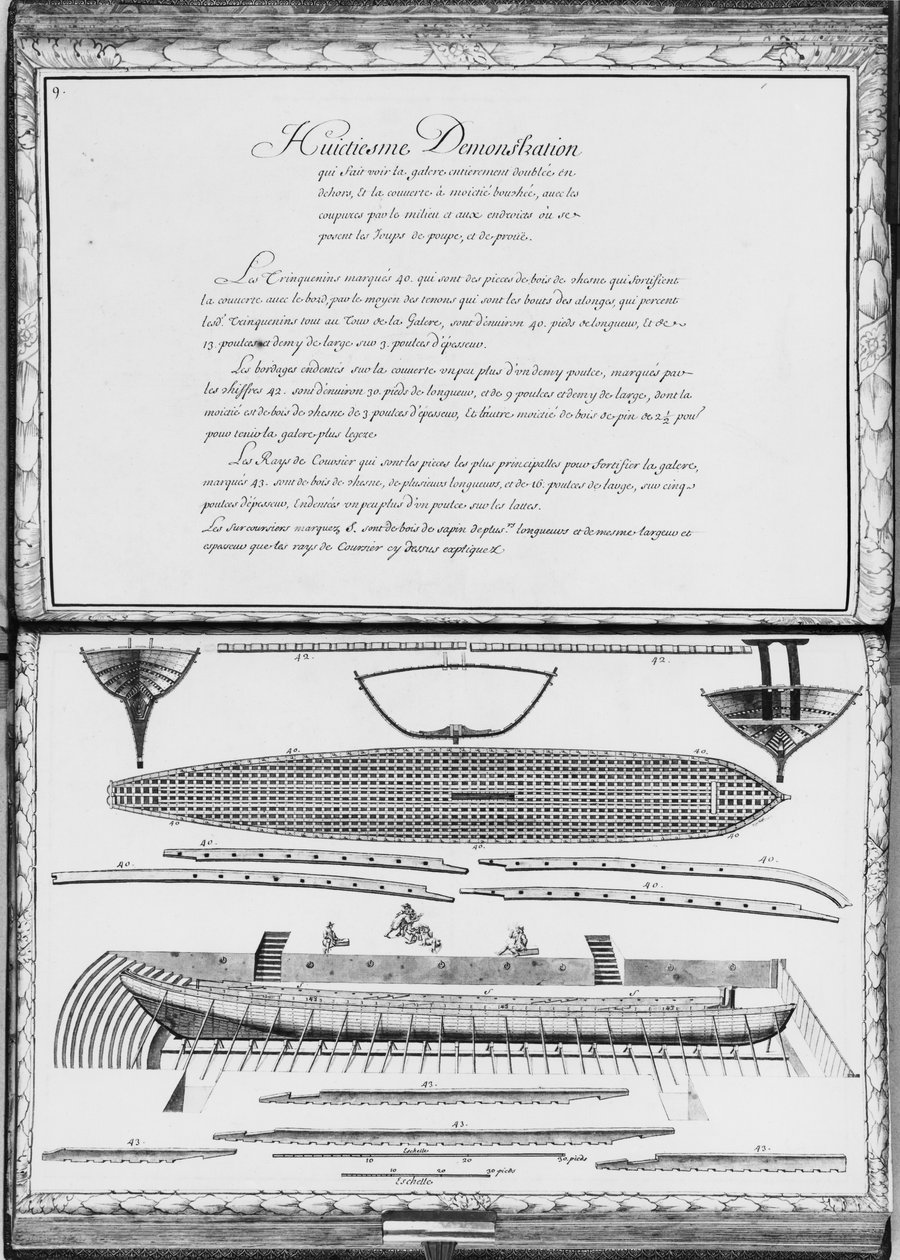 9.
Huictiesme Demonstration
qui fait voir la galere entierement doublée en
dehors, Et la couuerte à moictié bouchée, auec les
coupures par le milieu et aux endroicts où se
posent les Joups de poupe, et de prouë.
Les Trinquenins marqués 40. qui sont des pieces de bois de chesne qui fortifient
la couuerte auec le bord, par le moyen des tenons qui sont les bouts des alonges, qui percent
lesd. Trinquenins tout au Tour de la Galere, sont d'enuiron 40. pieds de longueur, Et de
13. poulces et demy de large sur 3. poulces d'épesseur.
Les bordages endentés sur la couuerte vn peu plus d'vn demy poulce, marqués par
les chiffres 42. sont d'enuiron 30. pieds de longueur, et de 9 poulces et demy de large, dont la
moictié est de bois de chesne de 3 poulces d'épesseur, Et l'autre moictié de bois de pin de 2 1/2 poul.
pour tenir la galere plus legere
Les Rays de Coursier qui sont les pieces les plus principalles pour fortifier la galere,
marqués 43. sont de bois de chesne, de plusieurs longueurs, et de 16. poulces de large, sur cinq
poulces d'épesseur, Endentées vn peu plus d'vn poulce sur les lattes.
Les surcoursiers marquez S. sont de bois de sapin de plus.rs longueurs et de mesme largeur et
espesseur que les rays de Coursier cy dessus expliquez
42. 42.
40. 40.
40 40. 40
40. 40.
40. 40.
S S S
43 43 43
43.
43.
43. 43.
Eschelle
10 20 30 pieds
10 20 30 pieds
Eschelle